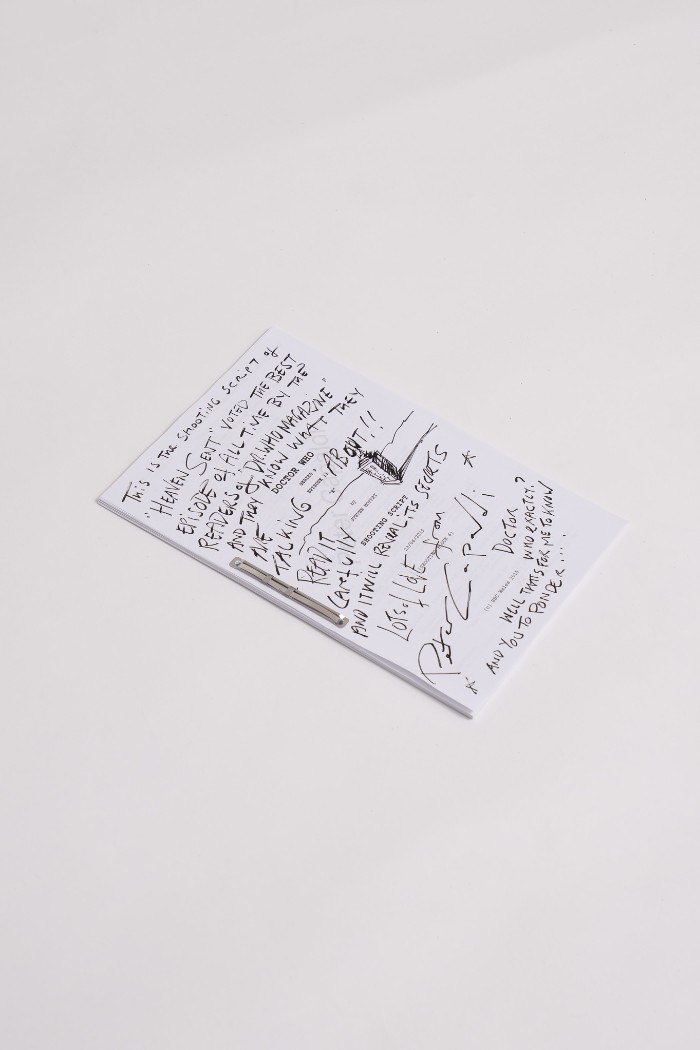 This is the shooting script of
"HEAVEN SENT" VOTED THE BEST
EPISODE of ALL TIME BY THE?
READERS of DR.WHO MAGAZINE"
AND THEY KNOW WHAT THEY
ARE
TALKING ABOUT!!
DOCTOR WHO
SERIES 9
EPISODE 11
by
STEVEN MOFFAT
SHOOTING SCRIPT
READ IT
Carefully
AND IT WILL REVEAL ITS SECRETS
LOTS of LOVE from
Peter Capaldi
DOCTOR
WHO EXACTLY?
WELL THATS FOR ME TO KNOW
AND YOU TO PONDER....